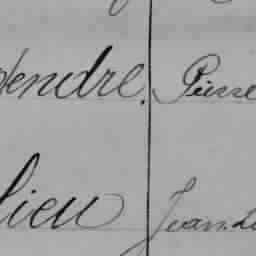 endre. Pierre
lieu Jean